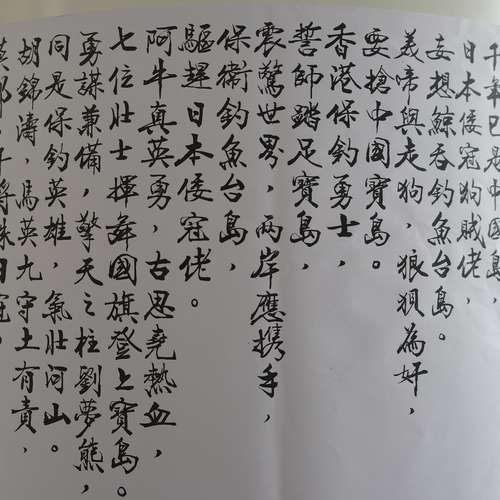 是中國島
日本倭寇狗賊佬，
妄想鯨吞釣魚台島。
美帝與走狗，狼狽為奸，
要搶中國寶島。
香港保釣勇士，
誓師踏足寶島，
震驚世界，兩岸應携手，
保衛釣魚台島，
驅趕日本倭寇佬。
阿牛真英勇，古思堯熱血，
七位壯士揮舞國旗登上寶島。
勇謀兼備，擎天之柱劉夢熊，
同是保釣英雄，氣壯河山。
胡錦濤，馬英九守土有責，